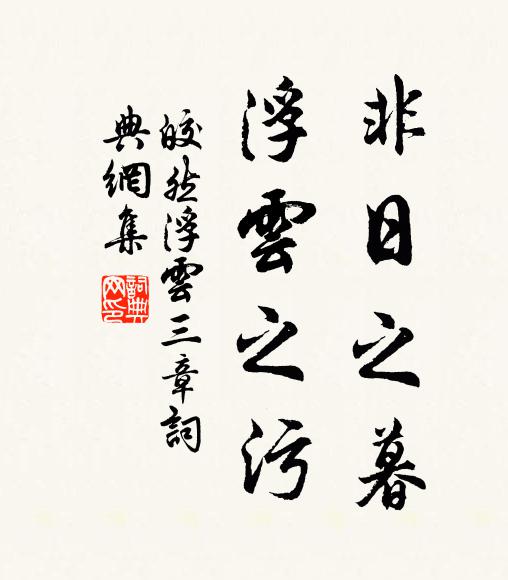 非日之暮
浮雲之污
皎然浮雲三章詞
典網集
詞典
网印